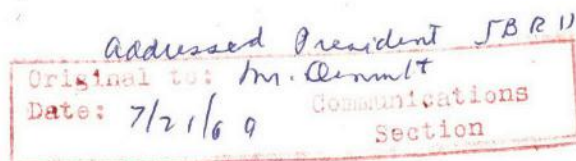 addressed President IBRD
Original to: Mr. Demuth
Date: 7/21/69 Communications
Section